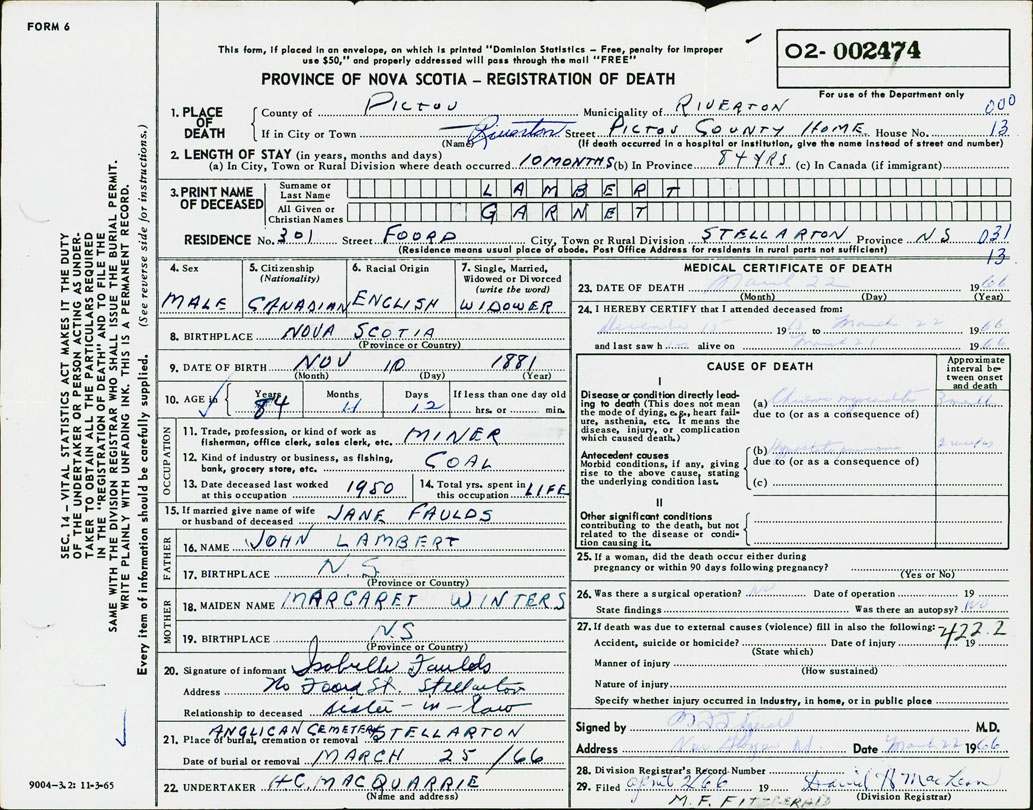 FORM 6
This form, if placed in an envelope, on which is printed "Dominion Statistics – Free, penalty for improper
use $50," and properly addressed will pass through the mail "FREE"
O2- 002474
PROVINCE OF NOVA SCOTIA – REGISTRATION OF DEATH
For use of the Department only
1. PLACE OF DEATH County of PICTOU Municipality of RIVERTON 000
If in City or Town Riverton Street PICTOU COUNTY HOME House No. 13
(Name) (If death occurred in a hospital or institution, give the name instead of street and number)
2. LENGTH OF STAY (in years, months and days)
(a) In City, Town or Rural Division where death occurred 10 MONTHS (b) In Province 84 YRS (c) In Canada (if immigrant)
3. PRINT NAME OF DECEASED Surname or Last Name LAMBERT
All Given or Christian Names GARNET
RESIDENCE No. 301 Street FOORD City, Town or Rural Division STELLARTON Province NS 031
(Residence means usual place of abode. Post Office Address for residents in rural parts not sufficient) 13
4. Sex MALE
5. Citizenship (Nationality) CANADIAN
6. Racial Origin ENGLISH
7. Single, Married, Widowed or Divorced (write the word) WIDOWER
8. BIRTHPLACE NOVA SCOTIA
(Province or Country)
9. DATE OF BIRTH NOV 10 1881
(Month) (Day) (Year)
10. AGE in Years 84 Months 4 Days 12 If less than one day old hrs. or min.
OCCUPATION
11. Trade, profession, or kind of work as fisherman, office clerk, sales clerk, etc. MINER
12. Kind of industry or business, as fishing, bank, grocery store, etc. COAL
13. Date deceased last worked at this occupation 1950
14. Total yrs. spent in this occupation LIFE
15. If married give name of wife or husband of deceased JANE FAULDS
FATHER
16. NAME JOHN LAMBERT
17. BIRTHPLACE N.S.
(Province or Country)
MOTHER
18. MAIDEN NAME MARGARET WINTERS
19. BIRTHPLACE N.S
(Province or Country)
20. Signature of informant Isobelle Faulds
Address Foord St. Stellarton
Relationship to deceased sister-in-law
21. Place of burial, cremation or removal ANGLICAN CEMETERY STELLARTON
Date of burial or removal MARCH 25 /66
22. UNDERTAKER H.C. MACQUARRIE
(Name and address)
MEDICAL CERTIFICATE OF DEATH
23. DATE OF DEATH March 22 1966
(Month) (Day) (Year)
24. I HEREBY CERTIFY that I attended deceased from:
December 15 19 to March 22 1966
and last saw h alive on March 21 1966
CAUSE OF DEATH
Approximate interval between onset and death
I
Disease or condition directly leading to death (This does not mean the mode of dying, e.g., heart failure, asthenia, etc. It means the disease, injury, or complication which caused death.)
(a) Chronic myocarditis
due to (or as a consequence of)
Antecedent causes
Morbid conditions, if any, giving rise to the above cause, stating the underlying condition last.
(b) 2 weeks
due to (or as a consequence of)
(c)
II
Other significant conditions contributing to the death, but not related to the disease or condition causing it.
25. If a woman, did the death occur either during pregnancy or within 90 days following pregnancy?
(Yes or No)
26. Was there a surgical operation? No Date of operation 19
State findings Was there an autopsy? No
27. If death was due to external causes (violence) fill in also the following: 422.2
Accident, suicide or homicide? Date of injury 19
(State which)
Manner of injury
(How sustained)
Nature of injury
Specify whether injury occurred in Industry, in home, or in public place
Signed by M.D.
Address New Glasgow Date March 22 1966
28. Division Registrar's Record Number
29. Filed April 2/66 19 David R MacLean
(Division Registrar)
M. F. FITZGERALD
SEC. 14 – VITAL STATISTICS ACT MAKES IT THE DUTY
OF THE UNDERTAKER OR PERSON ACTING AS UNDER-
TAKER TO OBTAIN ALL THE PARTICULARS REQUIRED
IN THE "REGISTRATION OF DEATH" AND TO FILE THE
SAME WITH THE DIVISION REGISTRAR WHO SHALL ISSUE THE BURIAL PERMIT.
WRITE PLAINLY WITH UNFADING INK. THIS IS A PERMANENT RECORD.
Every item of information should be carefully supplied. (See reverse side for instructions.)
9004-3.2: 11-3-65